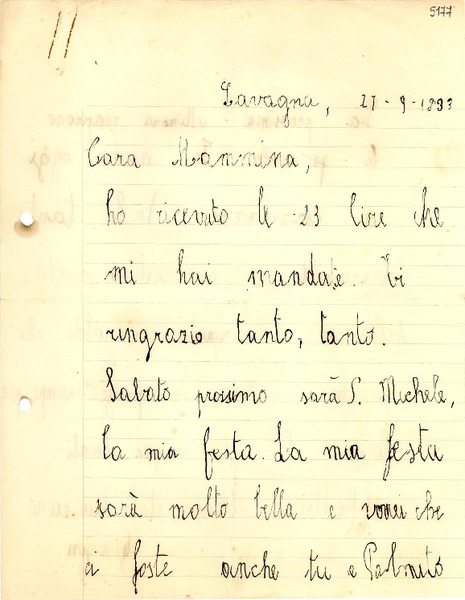 5177
11
Lavagna, 27-9-1893
Cara Mammina,
ho ricevuto le 23 lire che
mi hai mandate. Ti
ringrazio tanto, tanto.
Sabato prossimo sarà S. Michele,
la mia festa. La mia festa
sarà molto bella e vorrei che
ci foste anche tu e